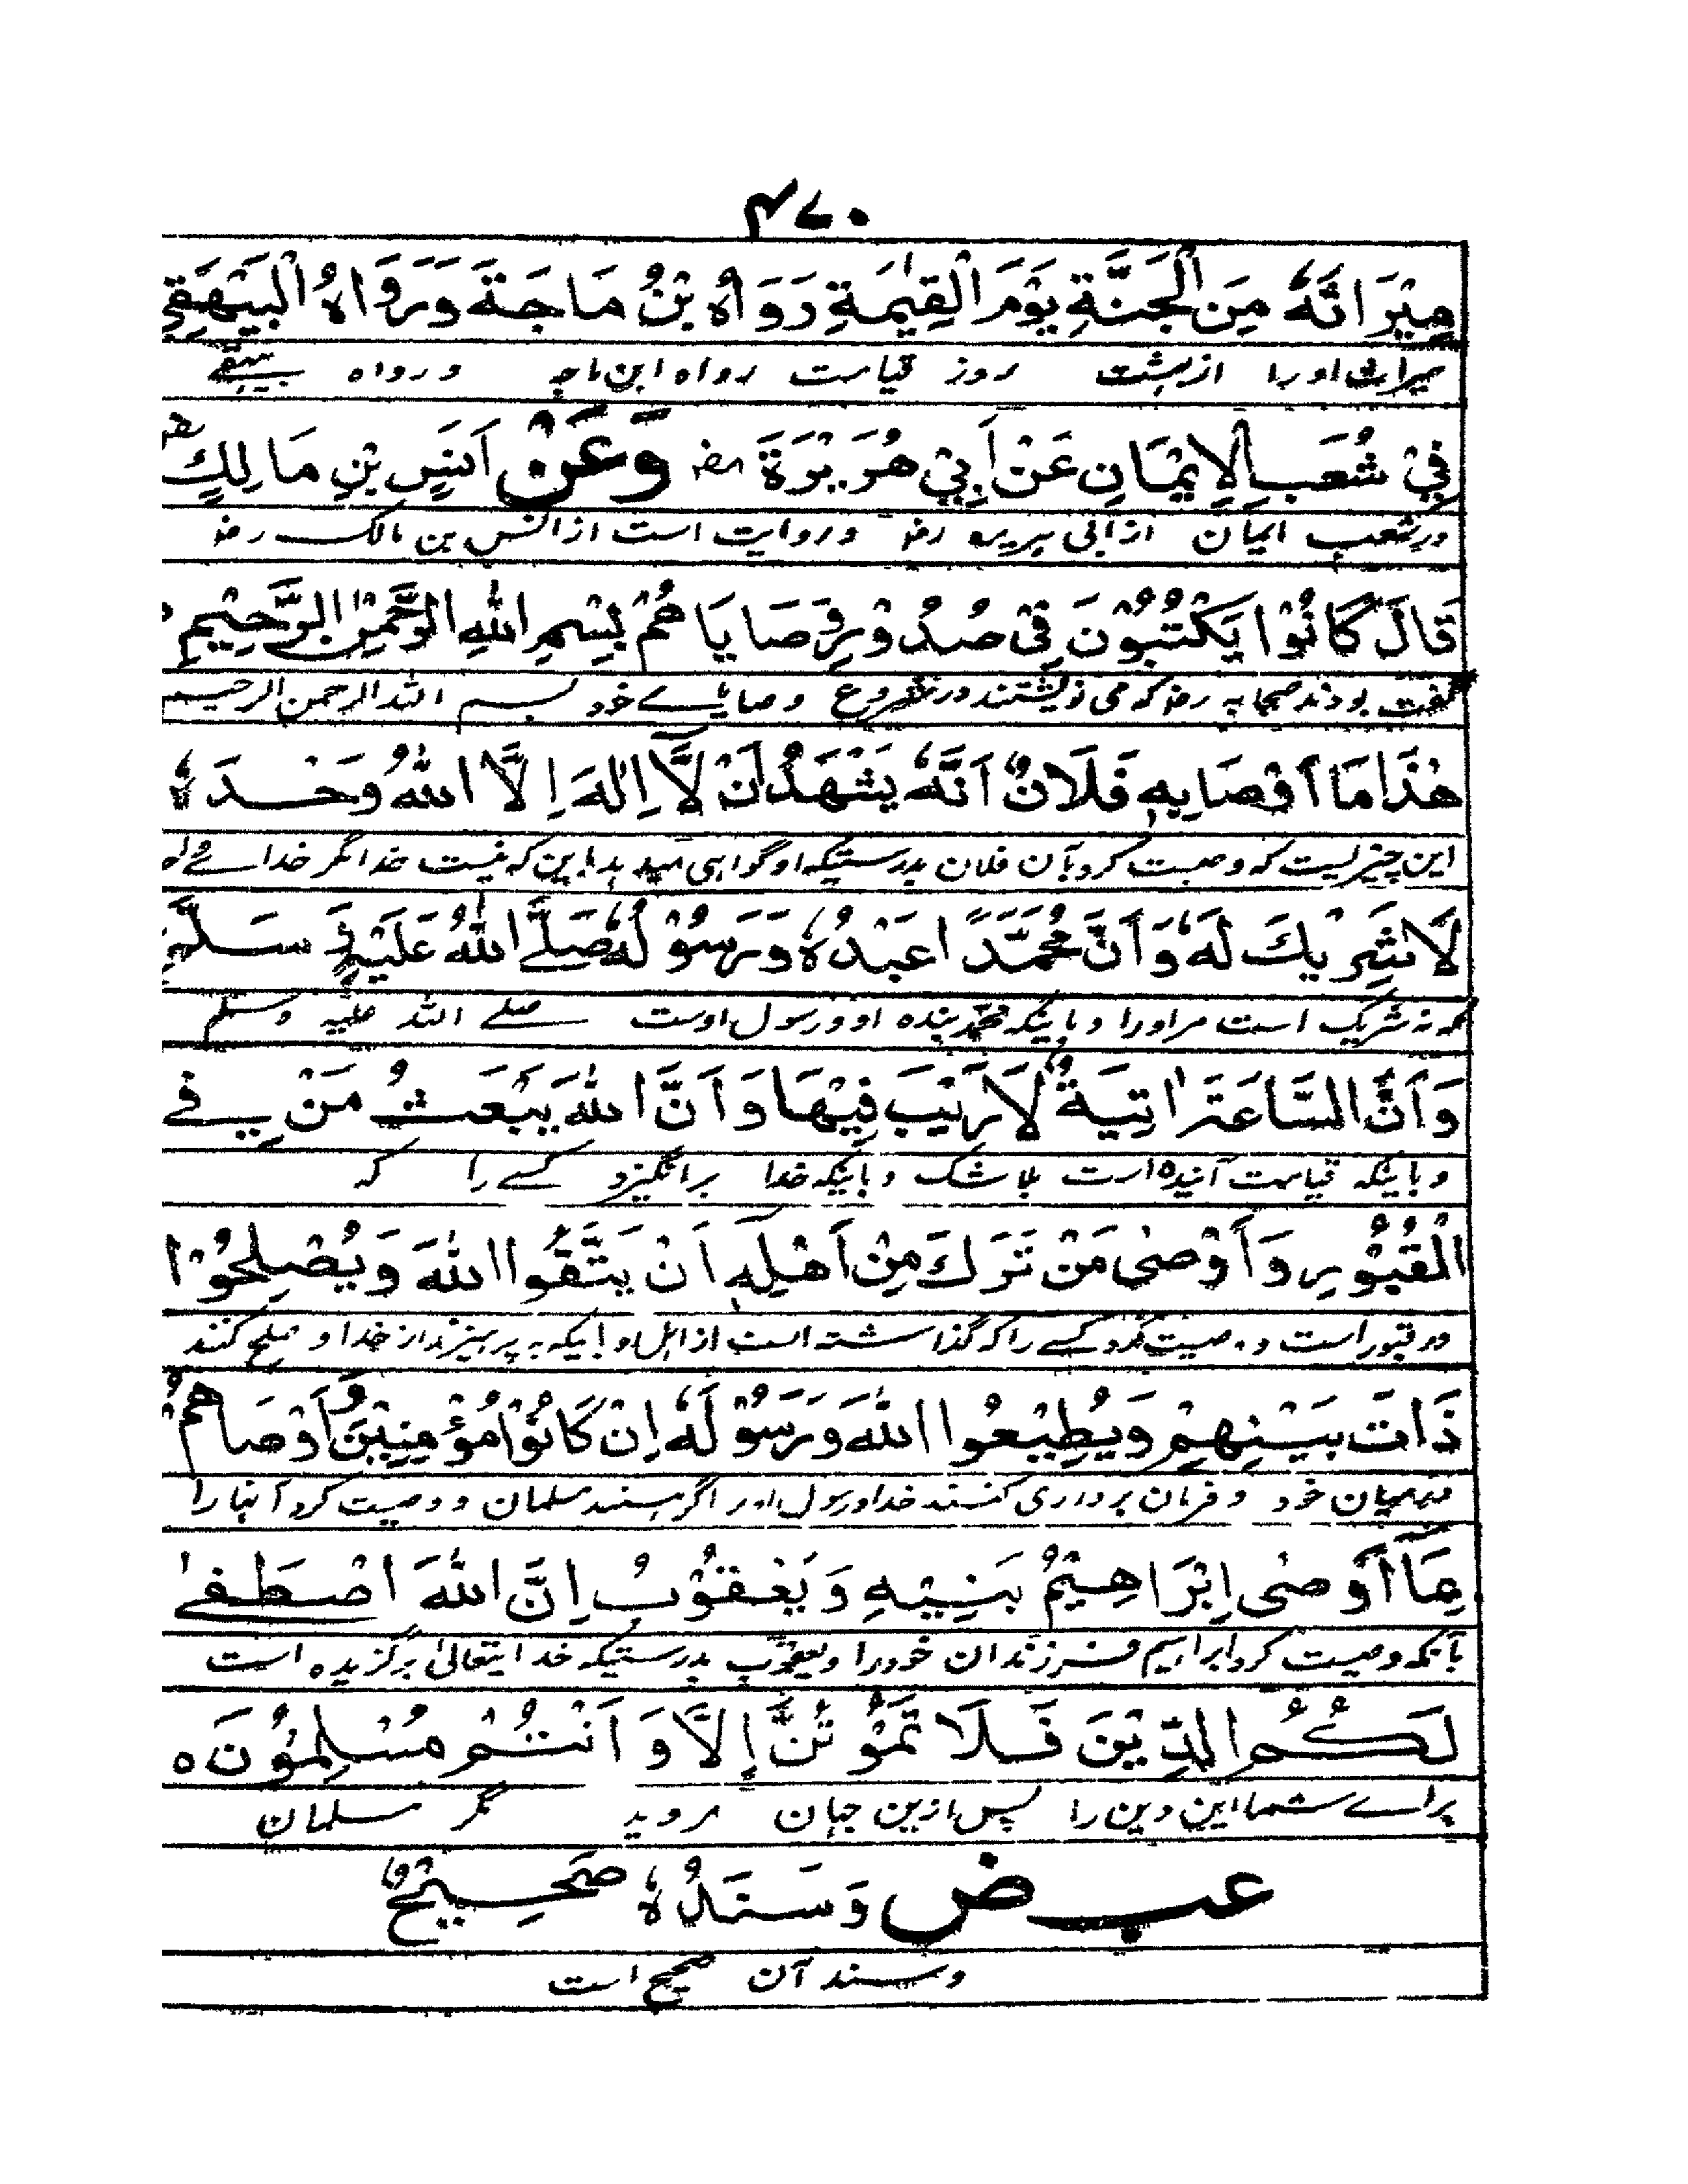 ۴۷۰
مِيْرَاثَهٗ مِنَ الْجَنَّةِ يَوْمَ الْقِيٰمَةِ رَوَاهُ بْنُ مَاجَةَ وَرَوَاهُ الْبَيْهَقِي
میراث اورا از بهشت روز قیامت رواه ابن ماجه و رواه بیهقے
فِيْ شُعَبِ الْاِيْمَانِ عَنْ أَبِيْ هُرَيْرَةَ رض وَعَنْ اَنَسِ بْنِ مَالِكٍ رض
در شعب ایمان از ابی هریره رض و روایت است از انس بن مالک رض
قَالَ كَانُوْا يَكْتُبُوْنَ فِيْ صُدُوْرِ وَصَايَاهُمْ بِسْمِ اللهِ الرَّحْمٰنِ الرَّحِيْمِ
گفت بودند صحابه رض که می نوشتند در شروع وصایاے خود بسم الله الرحمن الرحیم
هٰذَا مَا أَوْصَا بِهٖ فَلَانٌ اَنَّهٗ يَشْهَدُ اَنْ لَّا اِلٰهَ اِلَّا اللهُ وَحْدَهٗ
این چیزیست که وصیت کرد بآن فلان بدرستیکه او گواهی میدهد باین که نیست خدا مگر خداے
لَا شَرِيْكَ لَهٗ وَأَنَّ مُحَمَّدًا عَبْدُهٗ وَرَسُوْلُهٗ صَلَّے اللهُ عَلَيْهِ وَسَلَّمَ
که نه شریک است مر اورا و باینکه محمد بنده او و رسول اوست صلے الله علیه وسلم
وَأَنَّ السَّاعَةَ اٰتِيَةٌ لَا رَيْبَ فِيْهَا وَاَنَّ اللهَ يَبْعَثُ مَنْ فِے
و باینکه قیامت آینده است بلا شک و باینکه خدا برانگیزد کسے را که
الْقُبُوْرِ وَأَوْصٰى مَنْ تَرَكَ مِنْ اَهْلِهٖ اَنْ يَتَّقُوا اللهَ وَيُصْلِحُوْا
در قبور است و وصیت کرد کسے را که گذاشته است از اهل او باینکه به پرهیزند از خدا و صلح کنند
ذَاتَ بَيْنِهِمْ وَيُطِيْعُوا اللهَ وَرَسُوْلَهٗ اِنْ كَانُوْا مُؤْمِنِيْنَ وَأَوْصَاهُمْ
درمیان خود و فرمان برداری کنند خدا و رسول او را اگر هستند مسلمان و وصیت کرد آنها را
بِمَا أَوْصٰى اِبْرَاهِيْمُ بَنِيْهِ وَيَعْقُوْبُ اِنَّ اللهَ اصْطَفٰے
بآنکه وصیت کرد ابراهیم فرزندان خود را و یعقوب بدرستیکه خدایتعالیٰ برگزیده است
لَكُمُ الدِّيْنَ فَلَا تَمُوْتُنَّ إِلَّا وَاَنْتُمْ مُسْلِمُوْنَ ه
براے شما این دین را پس ازین جهان مروید مگر مسلمان
عب ض وَسَنَدُهٗ صَحِيْحٌ
و سند آن صحیح است